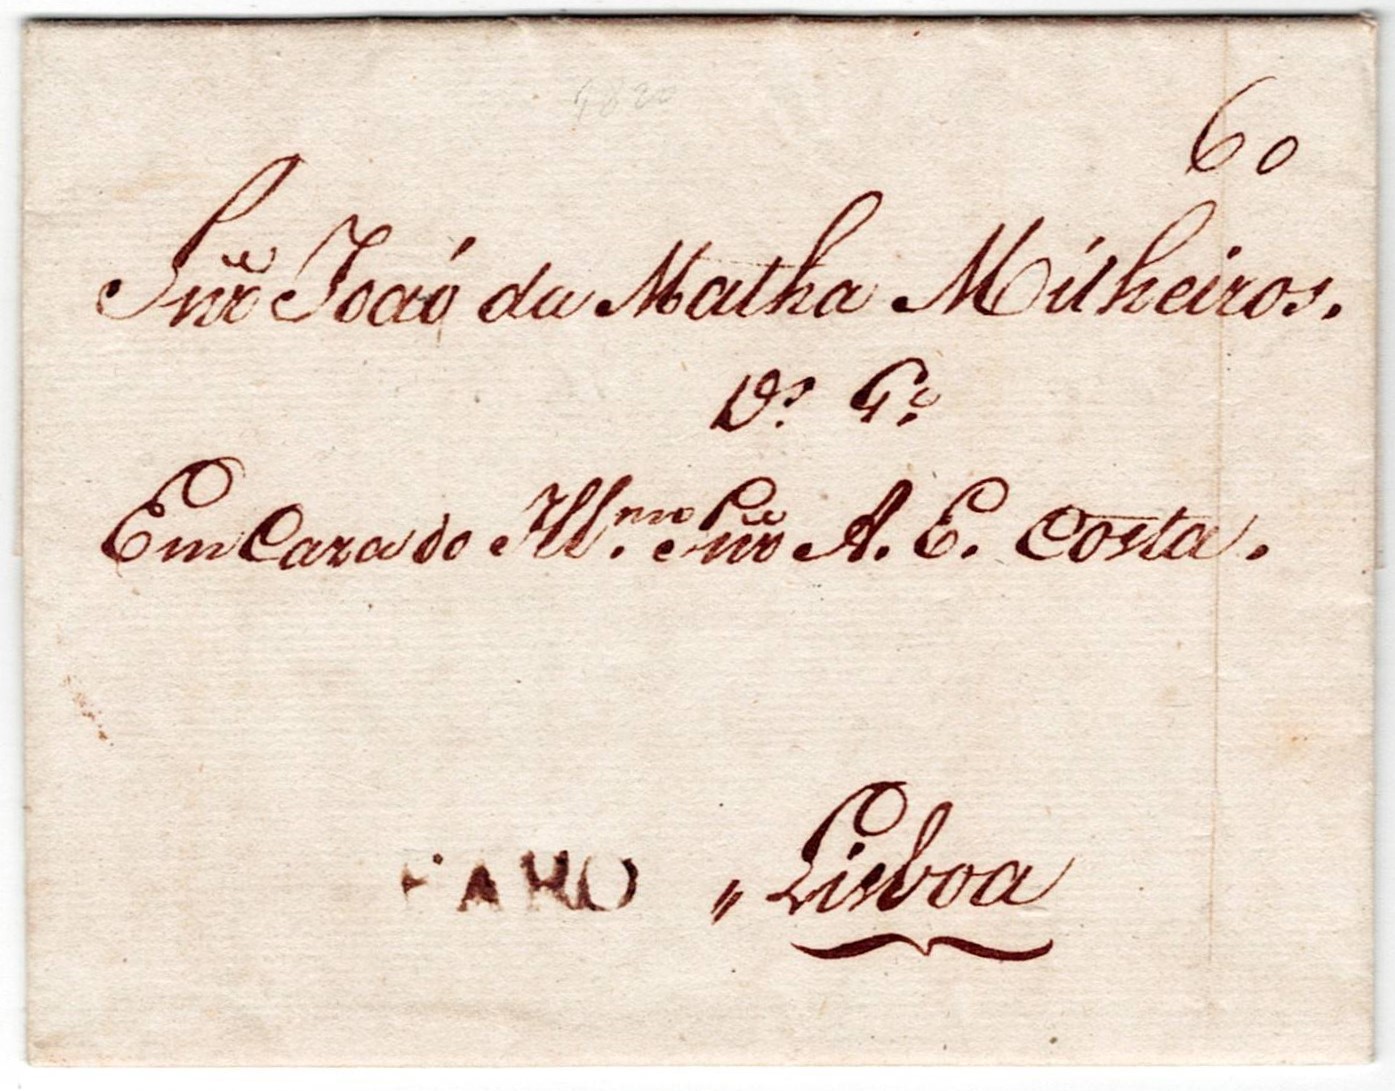 1820
60
Snr João da Matha Milheiros.
Ds. Ge.
Em Caza do Illmo. Snr A. E. Costa.
FARO
„ Lisboa